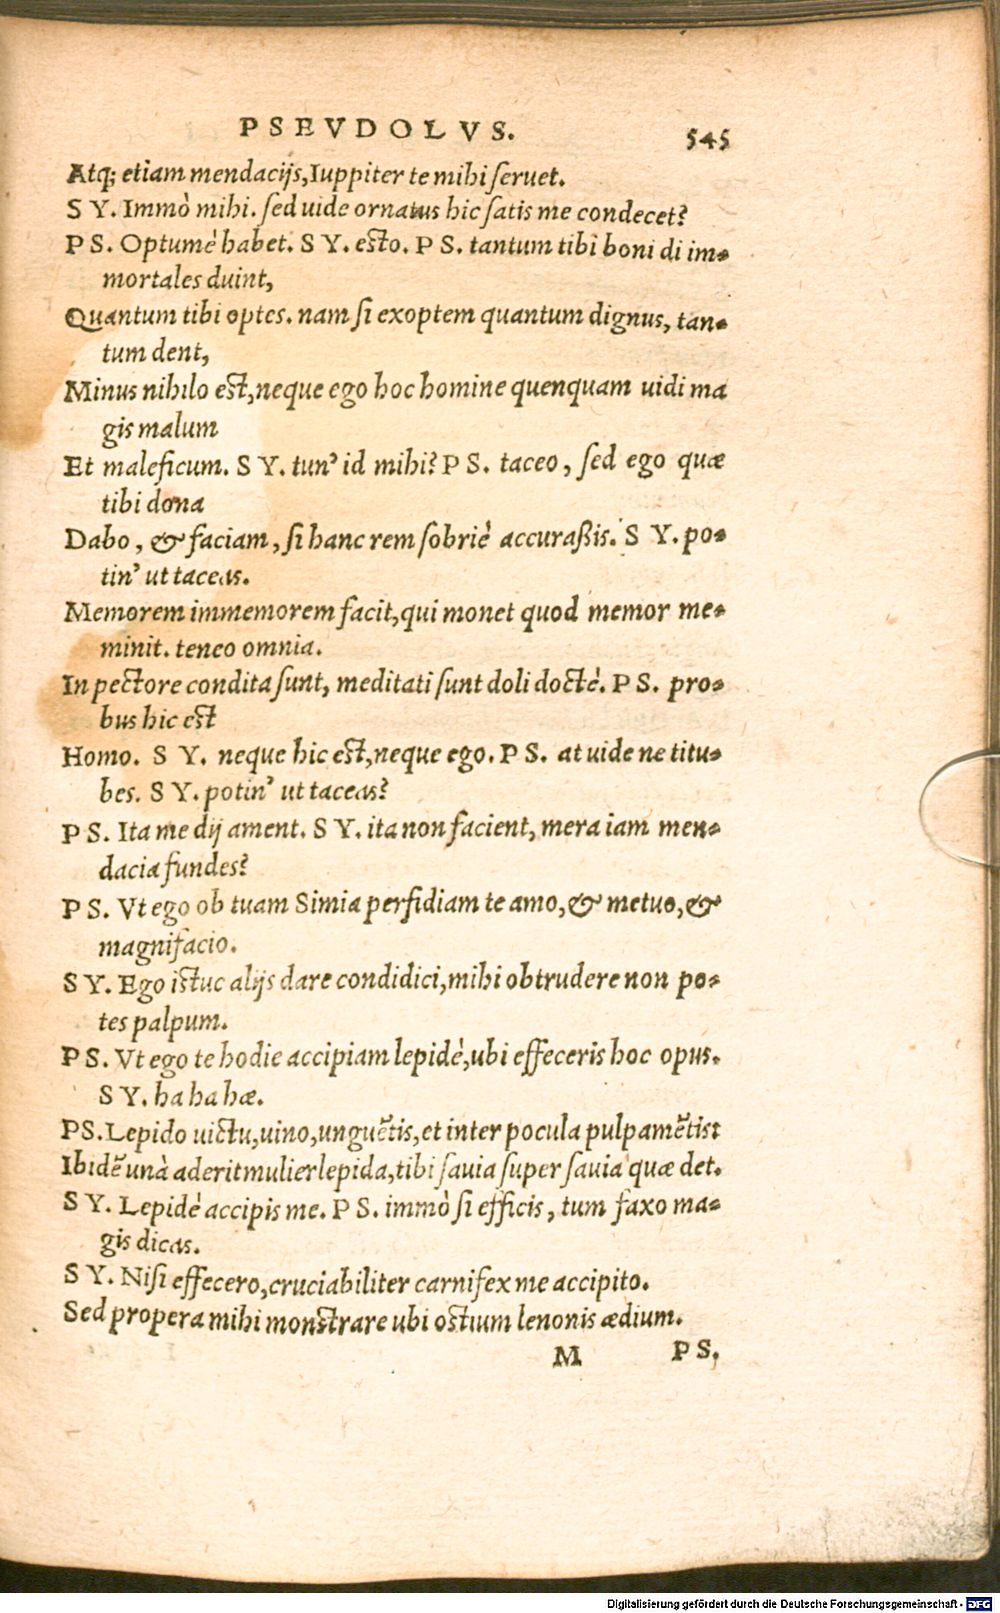 PSEVDOLVS. 545
Atq; etiam mendacijs, Iuppiter te mihi seruet.
S Y. Immò mihi. sed uide ornatus hic satis me condecet?
P S. Optumè habet. S Y. esto. P S. tantum tibi boni di im-
mortales duint,
Quantum tibi optes. nam si exoptem quantum dignus, tan-
tum dent,
Minus nihilo est, neque ego hoc homine quenquam uidi ma
gis malum
Et maleficum. S Y. tun' id mihi? P S. taceo, sed ego quæ
tibi dona
Dabo, & faciam, si hanc rem sobriè accuraßis. S Y. po-
tin' ut taceas.
Memorem immemorem facit, qui monet quod memor me-
minit. teneo omnia.
In pectore condita sunt, meditati sunt doli doctè. P S. pro-
bus hic est
Homo. S Y. neque hic est, neque ego. P S. at uide ne titu-
bes. S Y. potin' ut taceas?
P S. Ita me dij ament. S Y. ita non facient, mera iam men-
dacia fundes?
P S. Vt ego ob tuam Simia perfidiam te amo, & metuo, &
magnifacio.
S Y. Ego istuc alijs dare condidici, mihi obtrudere non po-
tes palpum.
P S. Vt ego te hodie accipiam lepidè, ubi effeceris hoc opus.
S Y. ha ha hæ.
PS. Lepido uictu, uino, unguẽtis, et inter pocula pulpamẽtis:
Ibidẽ unà aderit mulier lepida, tibi sauia super sauia quæ det.
S Y. Lepidè accipis me. P S. immò si efficis, tum faxo ma-
gis dicas.
S Y. Nisi effecero, cruciabiliter carnifex me accipito.
Sed propera mihi monstrare ubi ostium lenonis ædium.
M PS.
Digitalisierung gefördert durch die Deutsche Forschungsgemeinschaft - DFG